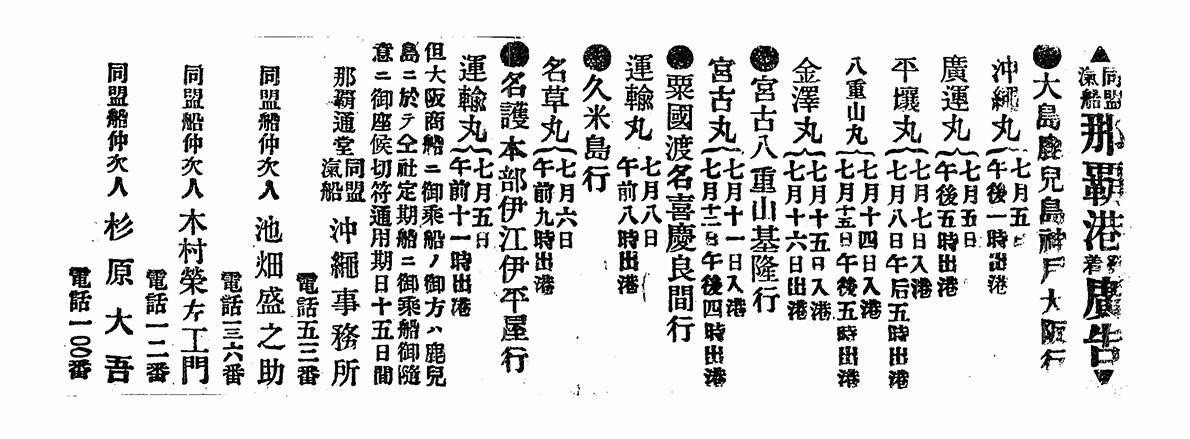 ▲同盟滊船那覇港発着廣告▼
●大島鹿兒島神戸大阪行
沖繩丸 七月五日
午後一時出港
廣運丸 七月五日
午後五時出港
平壤丸 七月七日入港
七月八日午后五時出港
八重山丸 七月十四日入港
七月十五日午後五時出港
金澤丸 七月十五日入港
七月十六日出港
●宮古八重山基隆行
宮古丸 七月十一日入港
七月十二日午後四時出港
●粟國渡名喜慶良間行
運輸丸 七月八日
午前八時出港
●久米島行
名草丸 七月六日
午前九時出港
●名護本部伊江伊平屋行
運輸丸 七月五日
午前十一時出港
但大阪商船ニ御乘船ノ御方ハ鹿兒
島ニ於テ仝社定期船ニ御乘船御隨
意ニ御座候切符通用期日十五日間
那覇通堂 同盟滊船 沖繩事務所
電話五三番
同盟船仲次人 池畑盛之助
電話一三六番
同盟船仲次人 木村榮左工門
電話一二番
同盟船仲次人 杉原大吾
電話一〇〇番